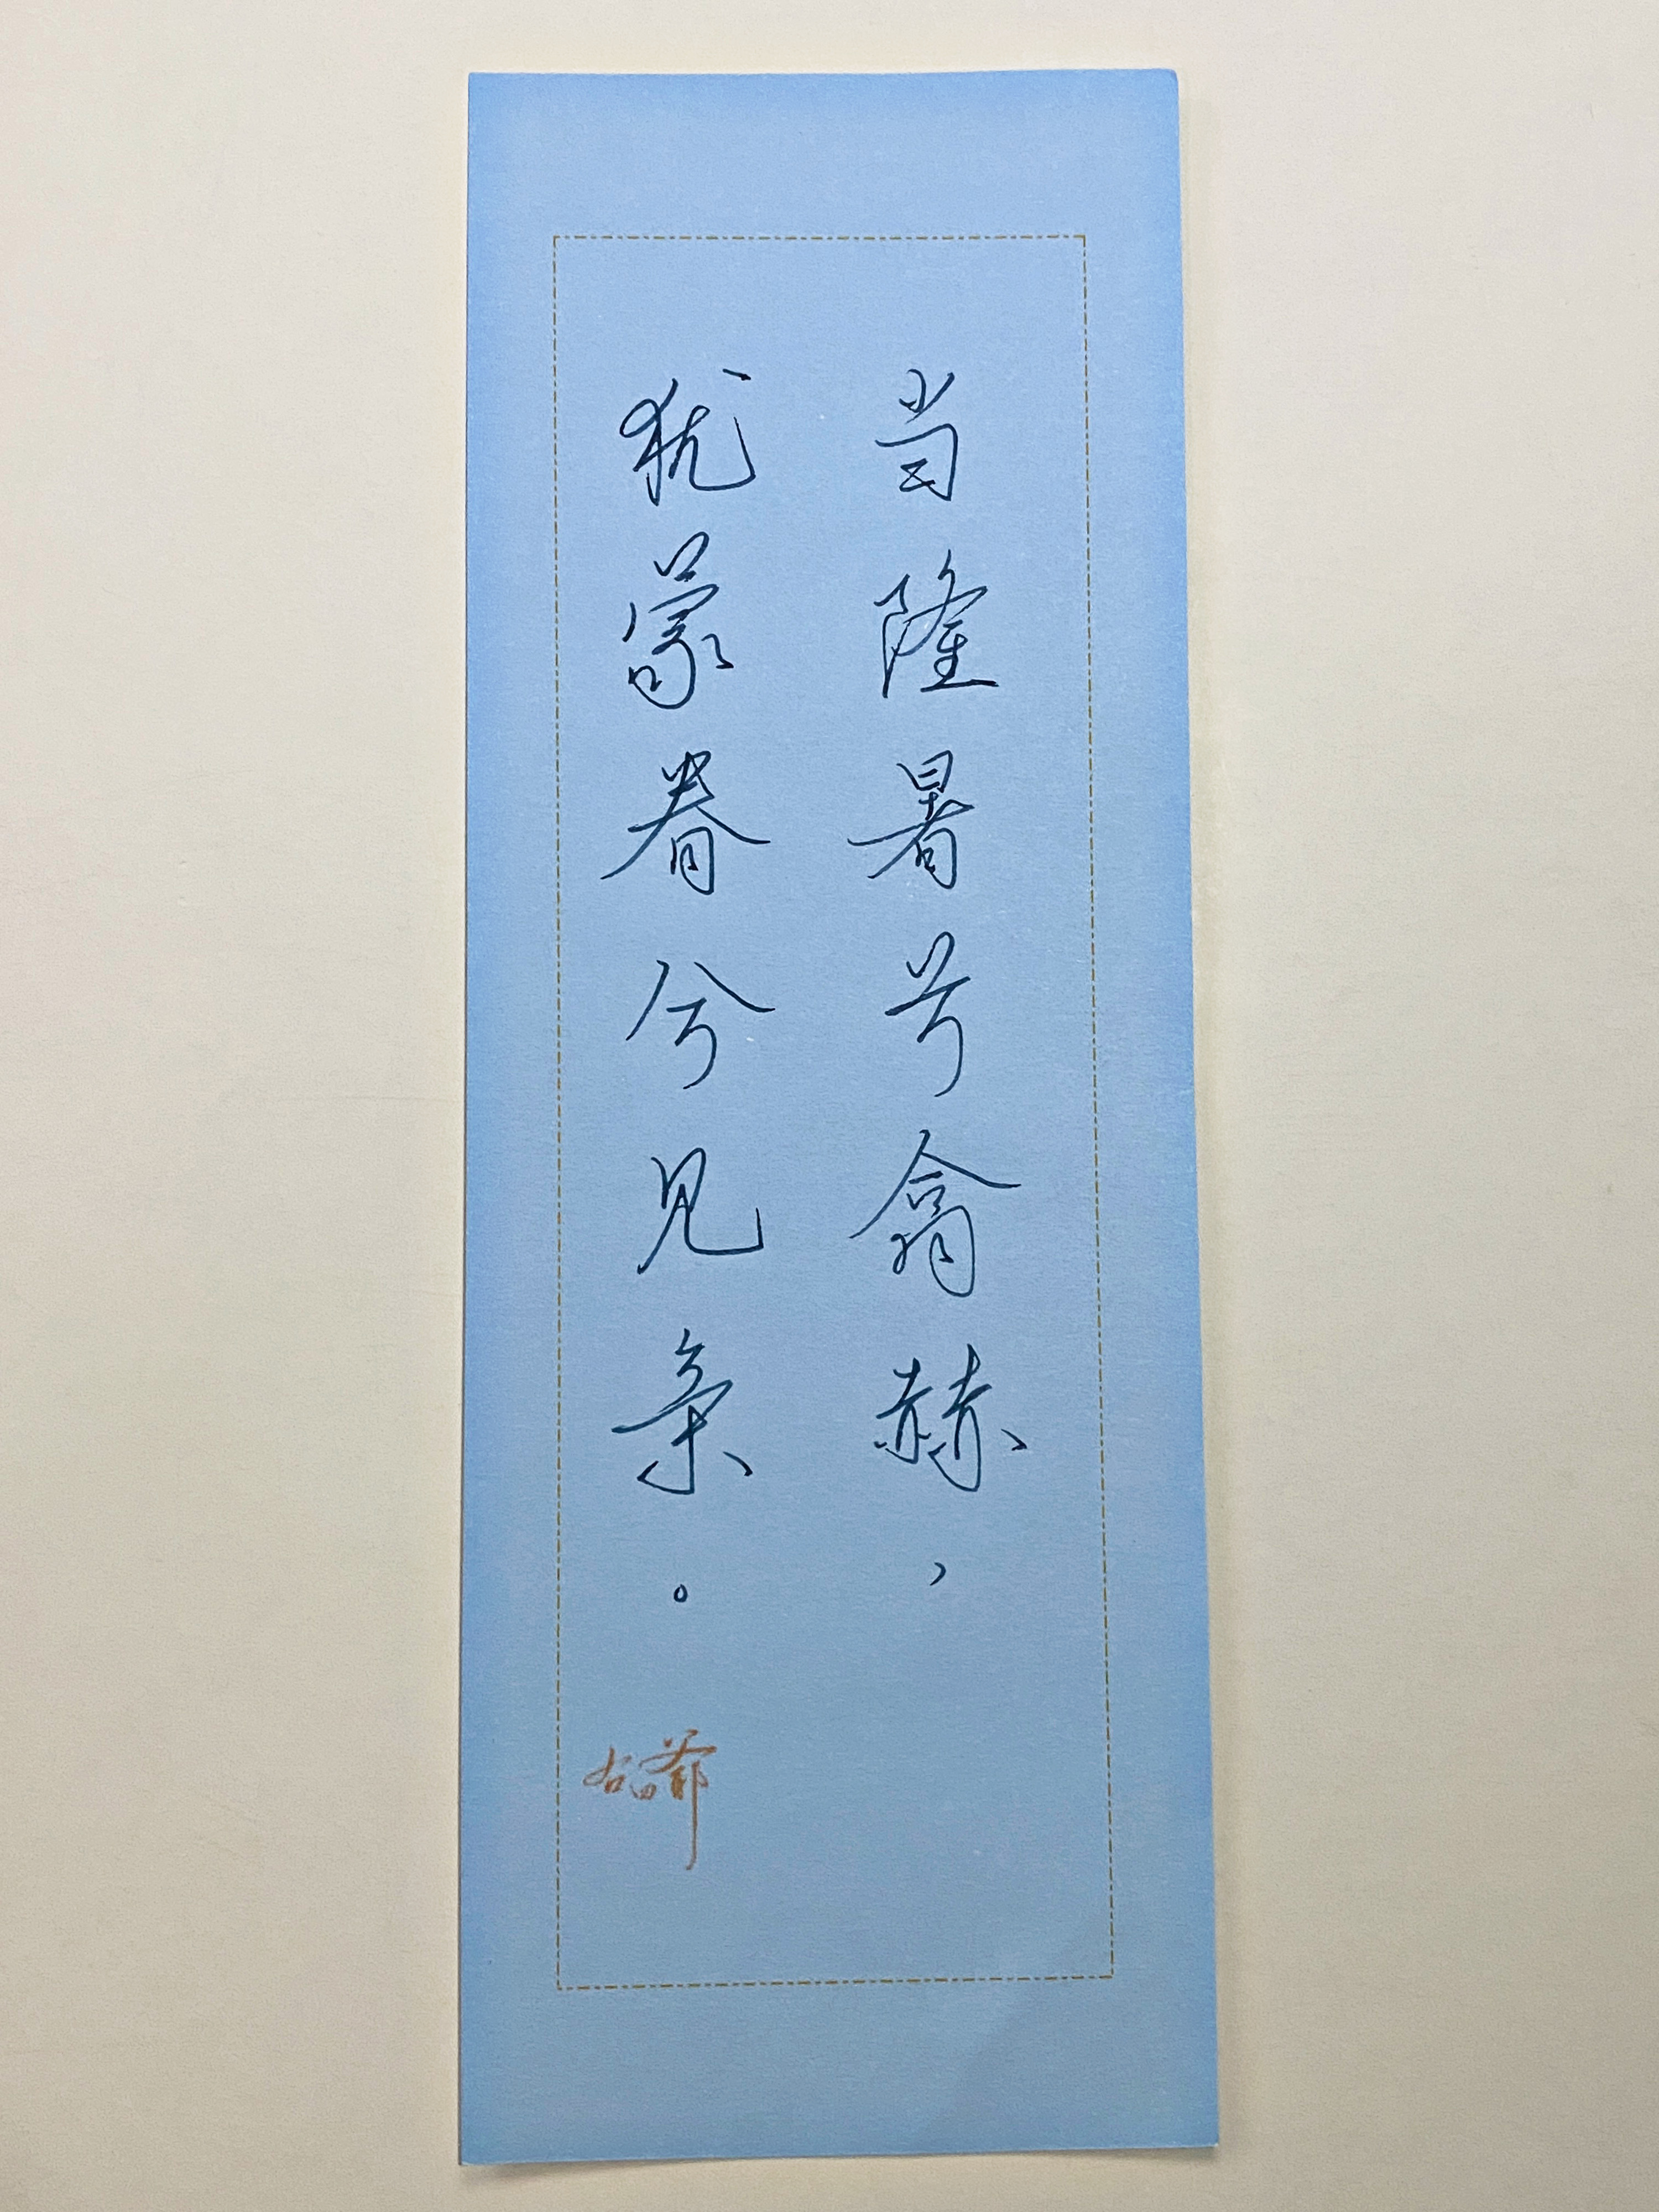 当隆暑兮翕赫，
犹蒙眷兮见亲。